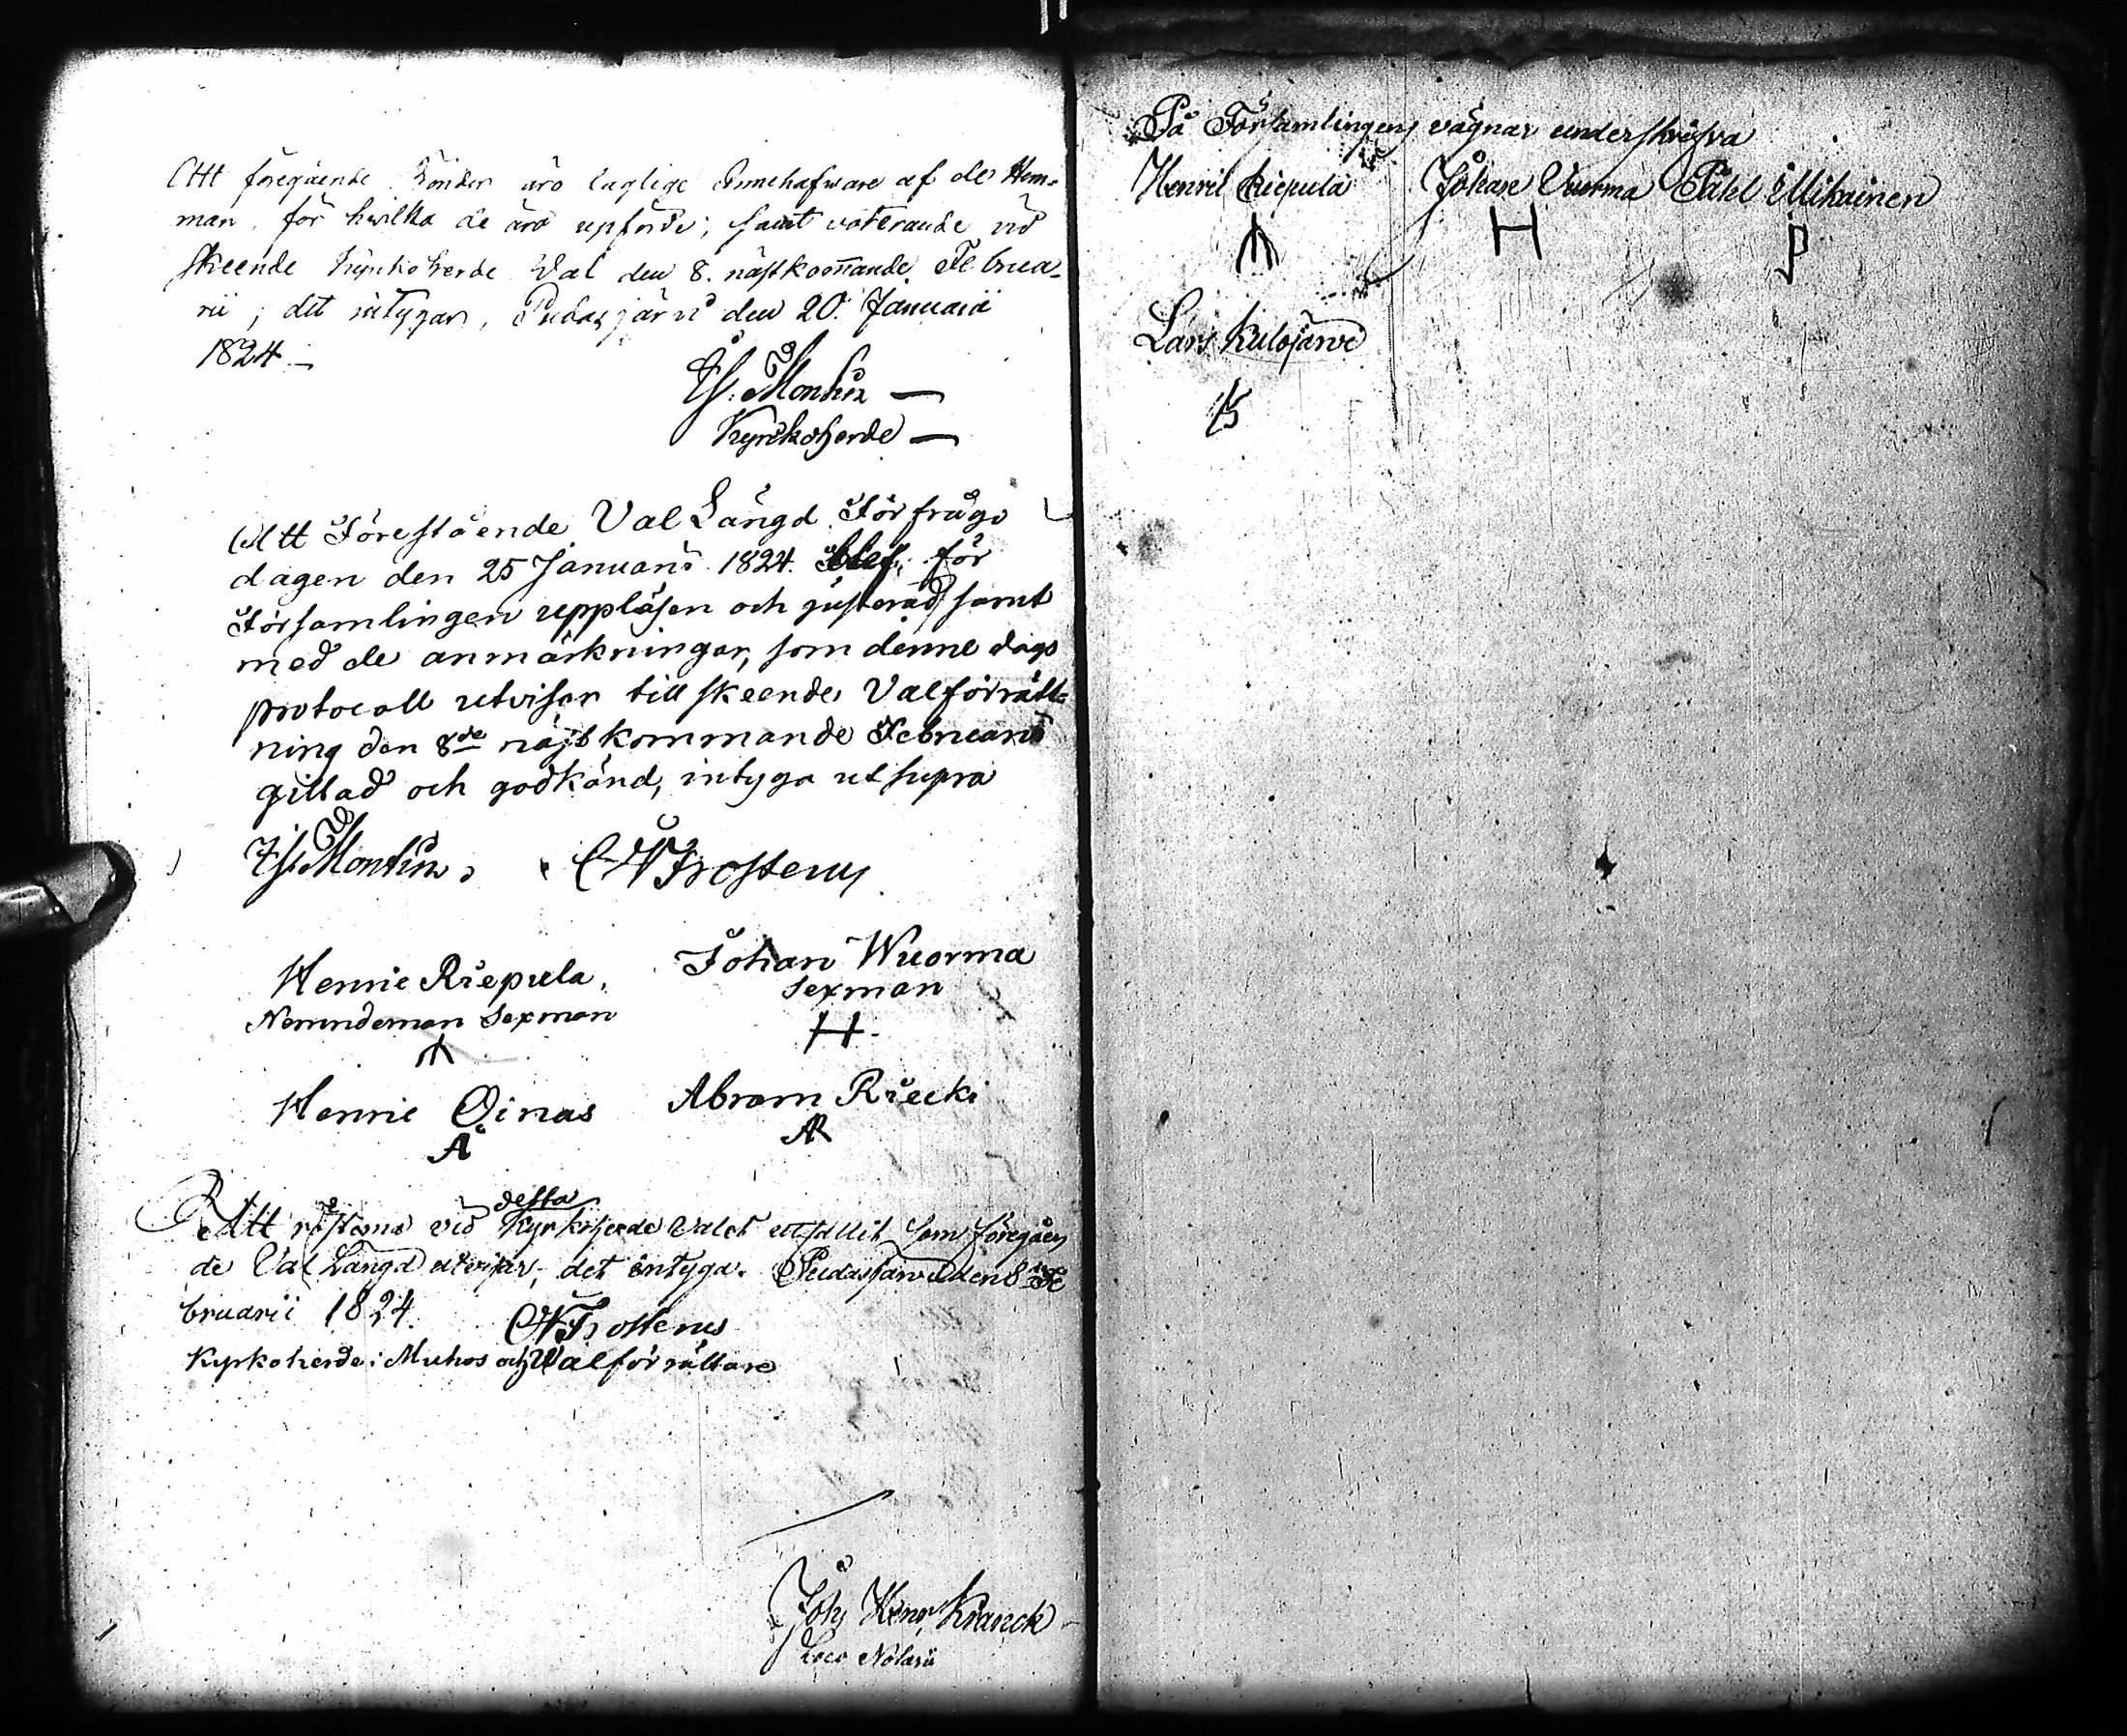 Att föregående Bönder äro laglige Innehafware af de Hem-
man, för hwilka de äro upförde; samt voterande vid
skeende Kyrkoherde Val den 8. nästkom̄ande Februa-
rii; det intygar, Pudasjärvi den 20. Januarii
1824.—
Montin —
Kyrkoherde —
Att Förestående Val Längd Förfrågo
dagen den 25 Januarii 1824. blef för
Församlingen uppläsen och justerad samt
med de anmärkningar, som denne dags
protocoll utvisar till skeende Valförrätt-
ning den 8de nästkommande Februarii
gillad och godkänd, intyga ut supra
Montin. C W Frosterus
Henric Riepula, Johan Wuorma
Nämndeman Sexman Sexman
H
Henric Oinas Abram Riecki
Ä AR
Att rösterna vid detta Kyrkoherde Valet utfallit som föregåen
de Val Längd utvisar, det intyga. Pudasjärvi den 8de Fe
bruarii 1824. CW Frosterus
Kyrkoherde i Muhos och Valförrättare
Joh Henr. Kranck
Loco Notarii
På Församlingens vägnar underskrifva
Henric Riepula Johan Vuorma Påhl Illikainen
H P
Lars Kulojärvi